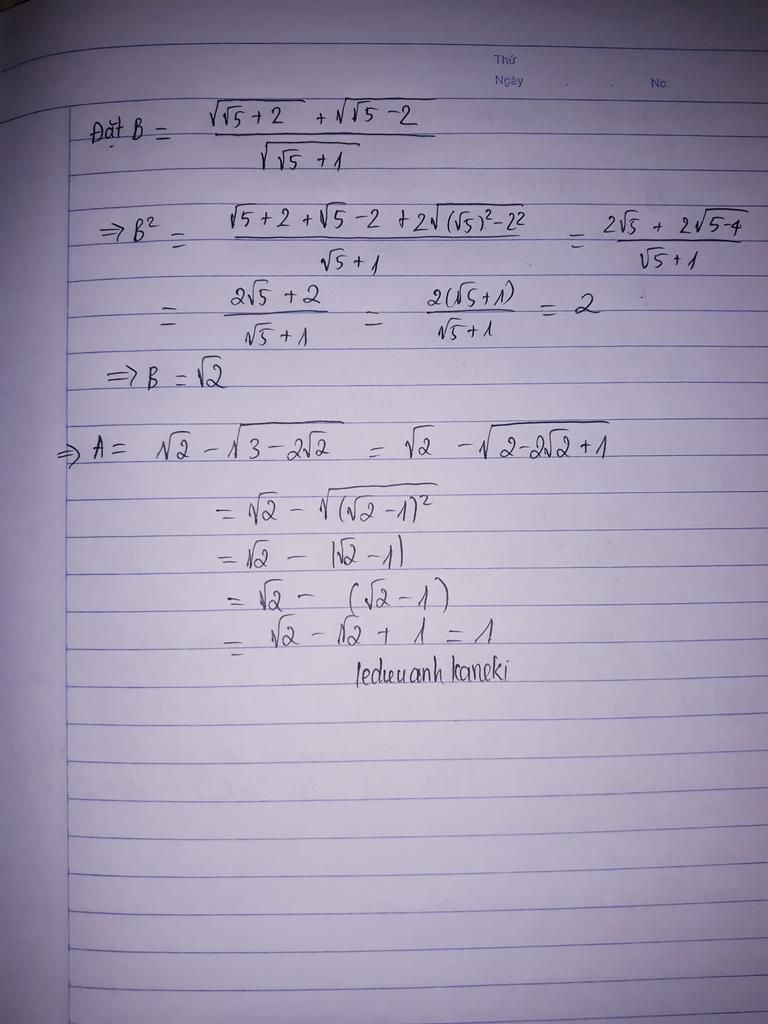 Thứ
Ngày . . No.
Đặt B = (√(√5 + 2) + √(√5 − 2)) / √(√5 + 1)
⇒ B² = (√5 + 2 + √5 − 2 + 2√((√5)² − 2²)) / (√5 + 1) = (2√5 + 2√(5−4)) / (√5 + 1)
= (2√5 + 2) / (√5 + 1) = 2(√5 + 1) / (√5 + 1) = 2
⇒ B = √2
⇒ A = √2 − √(3 − 2√2) = √2 − √(2 − 2√2 + 1)
= √2 − √((√2 − 1)²)
= √2 − |√2 − 1|
= √2 − (√2 − 1)
= √2 − √2 + 1 = 1
kaneki